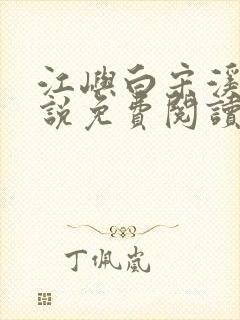 江嶼白宋溪
說免費閱讀
丁佩嵐